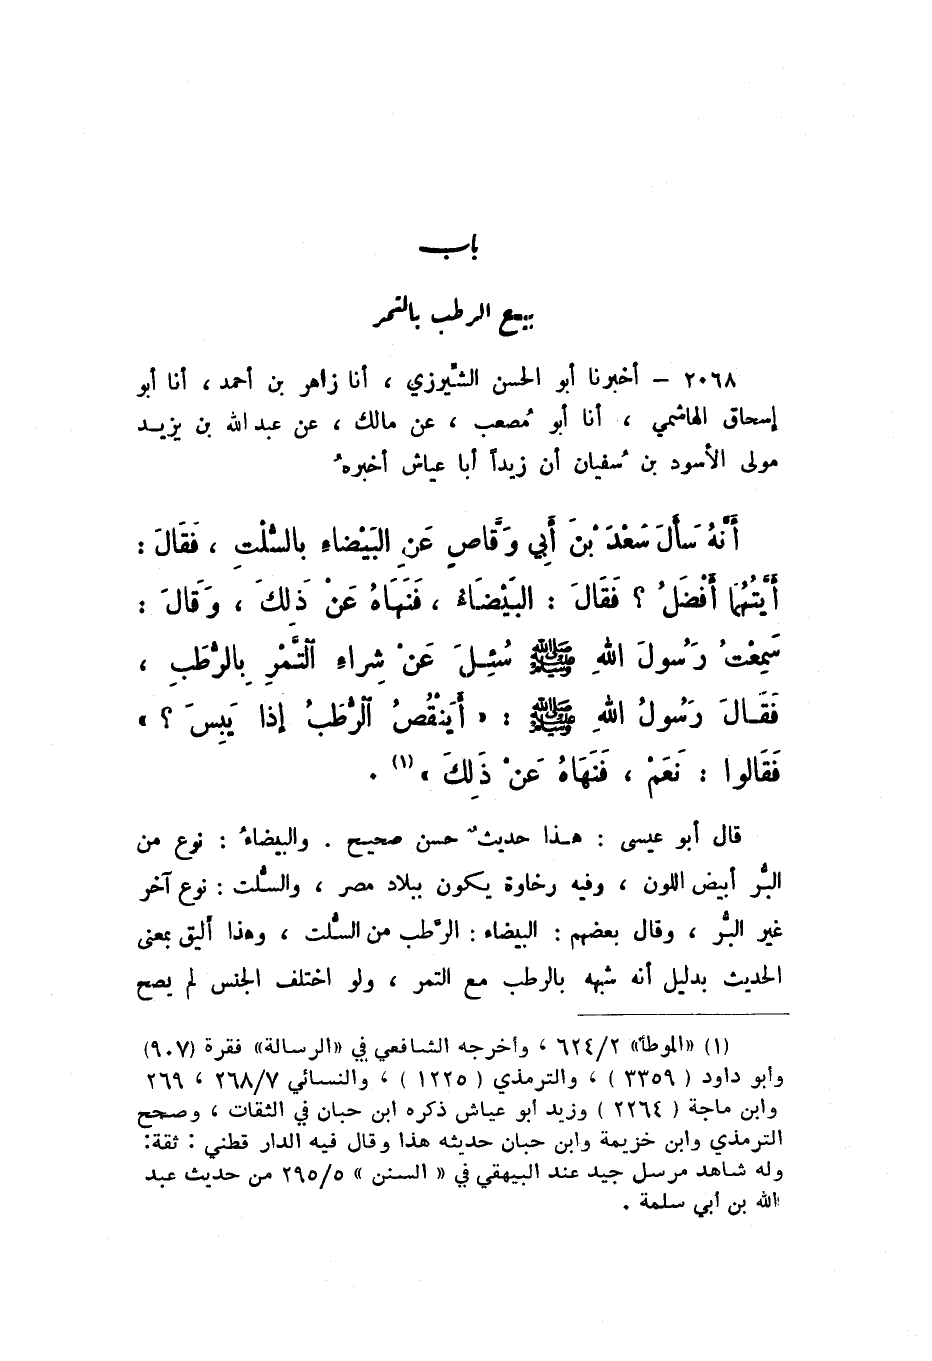 باب
بيع الرطب بالتمر
٢٠٦٨ – أخبرنا أبو الحسن الشِّيرزي ، أنا زاهر بن أحمد ، أنا أبو
إسحاق الهاشمي ، أنا أبو مُصعب ، عن مالك ، عن عبد الله بن يزيد
مولى الأسود بن سُفيان أن زيداً أبا عياش أخبرهُ
أَنَّهُ سَأَلَ سَعْدَ بْنَ أَبِي وَقَّاصٍ عَنِ البَيْضاءِ بالسُّلْتِ ، فَقَالَ :
أَيَّتُهُمَا أَفْضَلُ ؟ فَقَالَ : البَيْضَاءُ ، فَنَهَاهُ عَنْ ذَلِكَ ، وَقَالَ :
سَمِعْتُ رَسُولَ اللهِ ﷺ سُئِلَ عَنْ شِراءِ التَّمْرِ بِالرُّطَبِ ،
فَقَالَ رَسُولُ اللهِ ﷺ : « أَيَنْقُصُ الرُّطَبُ إذا يَبِسَ ؟ »
فَقَالُوا : نَعَمْ ، فَنَهَاهُ عَنْ ذَلِكَ »(١) .
قال أبو عيسى : هذا حديثٌ حسن صحيح . والبيضاءُ : نوع من
البُّر أبيض اللون ، وفيه رخاوة يكون ببلاد مصر ، والسُّلت : نوع آخر
غير البُّر ، وقال بعضهم : البيضاء : الرَّطب من السُّلت ، وهذا أليق بمعنى
الحديث بدليل أنه شبهه بالرطب مع التمر ، ولو اختلف الجنس لم يصح
(١) «الموطأ» ٦٢٤/٢ ، وأخرجه الشافعي في «الرسالة» فقرة (٩٠٧)
وأبو داود ( ٣٣٥٩ ) ، والترمذي ( ١٢٢٥ ) ، والنسائي ٢٦٨/٧ ، ٢٦٩
وابن ماجة ( ٢٢٦٤ ) وزيد أبو عياش ذكره ابن حبان في الثقات ، وصحح
الترمذي وابن خزيمة وابن حبان حديثه هذا وقال فيه الدار قطني : ثقة:
وله شاهد مرسل جيد عند البيهقي في « السنن » ٢٩٥/٥ من حديث عبد
الله بن أبي سلمة .